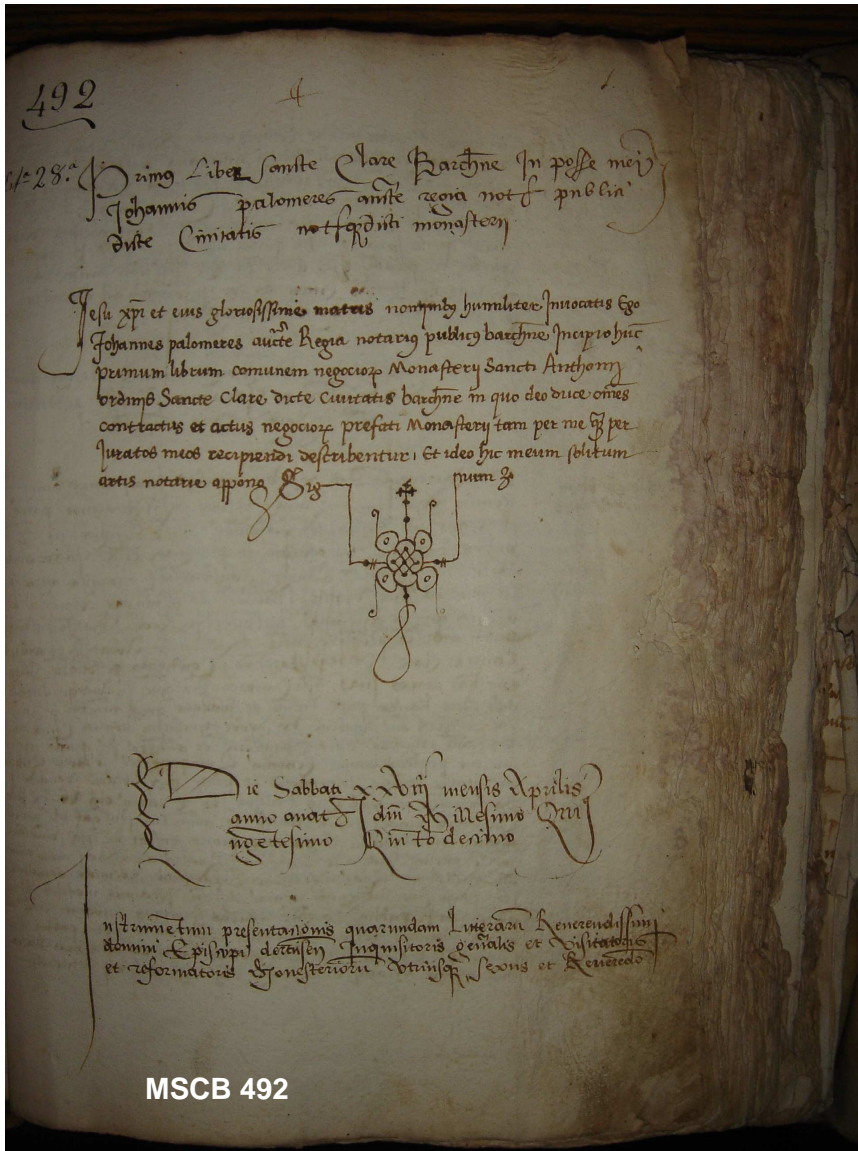 492
28.ª Primus Liber sancte Clare Barchne In posse mei
Johannis palomeres aucte regia not publici
dicte Civitatis monasterii
Jesu xpi et eius gloriosissime matris nominibus humiliter Invocatis Ego
Johannes palomeres aucte Regia notarius publicus barchne Incipio hūc
primum librum comunem negocior Monasterij Sancti Anthonij
ordinis Sancte Clare dicte Civitatis barchne in quo deo duce om̄es
contractus et actus negocior prefati Monasterij tam per me per
Juratos meos recipiendi describentur, Et ideo hic meum solitum
artis notarie appono Sig num
Die Sabbati xxviij mensis Aprilis
anno anat dnī Millesimo Quī
ngētesimo Quīto decimo
Instrumētum presentationis quarundam Literarū Reverendissimi
domini Episcopi dertuseñ Inquisitoris gēnalis et visitatoris
et reformatoris Monesteriorū utriusq sexus et Reverēdo
MSCB 492